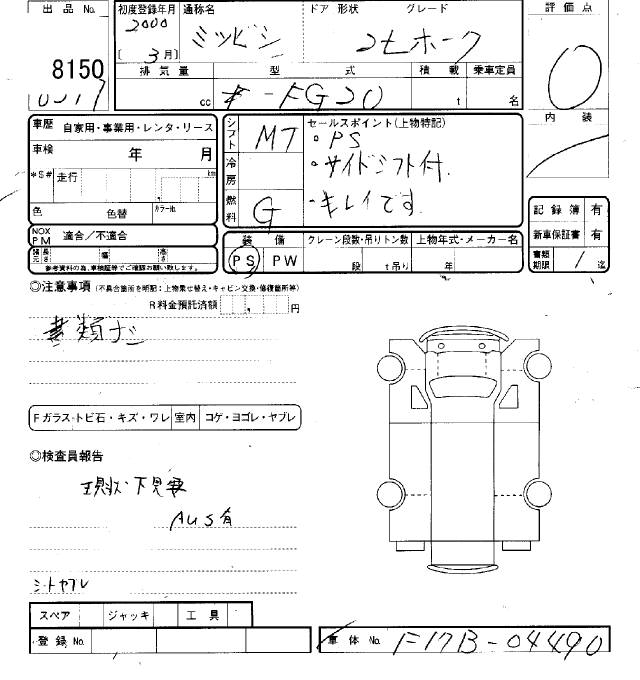 出品 No.
8150
初度登録年月
2000
( 3月)
通称名
ミツビシ
ドア 形状 グレード
2tホーク
評価点
0
排気量
cc
型式
-FG20
積載
t
乗車定員
名
内装
車歴 自家用・事業用・レンタ・リース
車検 年 月
*S# 走行 km
色 色替 カラーNo.
NOX PM 適合/不適合
諸元 長さ 幅 高さ
参考資料の為、車検証等でご確認お願い致します。
シフト MT
冷房
燃料 G
セールスポイント(上物特記)
・PS
・サイドシフト付.
・キレイです.
装備
PS PW
クレーン段数・吊りトン数
段 t吊り
上物年式・メーカー名
年
記録簿 有
新車保証書 有
書類期限 / 迄
◎注意事項 (不具合箇所を明記:上物乗せ替え・キャビン交換・修復箇所等)
R料金預託済額 , 円
書類ナシ
Fガラス・トビ石・キズ・ワレ 室内 コゲ・ヨゴレ・ヤブレ
◎検査員報告
現状下見要
AUS有
シートヤブレ
スペア ジャッキ 工具
登録 No.
車体 No. F17B-04490